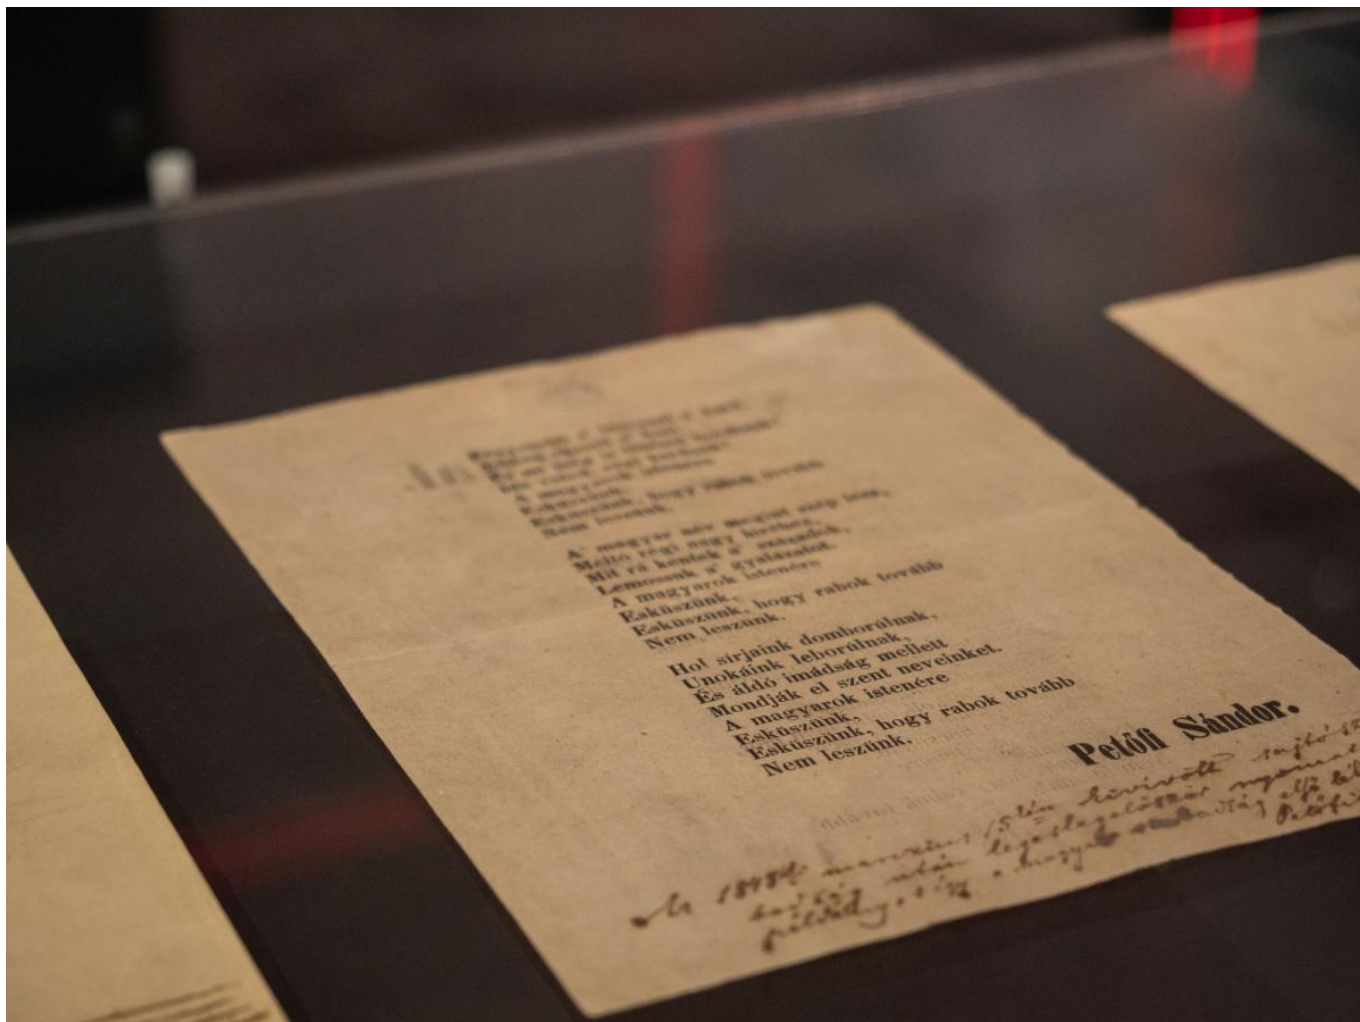 A magyarok istenére
Esküszünk,
Esküszünk, hogy rabok tovább
Nem leszünk.
A' magyar név megint szép lesz,
Méltó régi nagy hiréhez,
Mit rá kentek a' századok,
Lemossuk a' gyalázatot.
A magyarok istenére
Esküszünk,
Esküszünk, hogy rabok tovább
Nem leszünk.
Hol sírjaink domborúlnak,
Unokáink leborúlnak,
És áldó imádság mellett
Mondják el szent neveinket.
A magyarok istenére
Esküszünk,
Esküszünk, hogy rabok tovább
Nem leszünk.
Petőfi Sándor.
Az 1848 marczius 15kén kivívott sajtósz
badság után legeslegelőször nyomat
példány, s így a magyar szabadság első lél
Petőfi